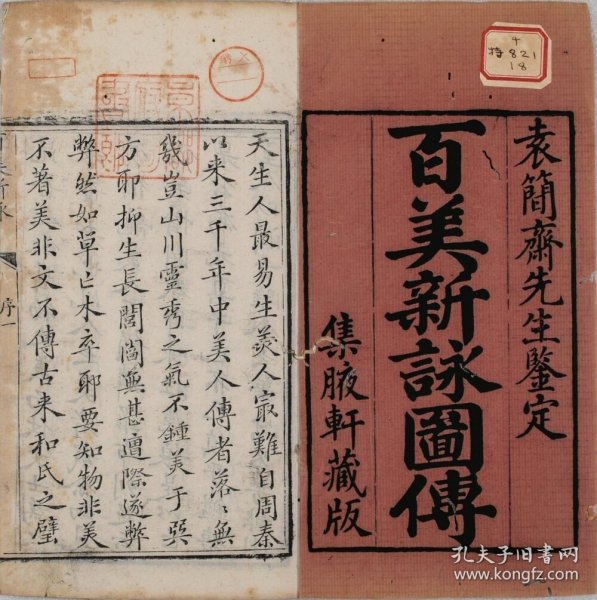 袁簡齋先生鑒定
百美新詠圖傳
集腋軒藏版
4
特821
18
天生人最易生美人最難自周秦
以来三千年中美人傳者落〻無
幾豈山川靈秀之氣不鍾美于巽
方耶抑生長閭閻無甚遭際遂弊
弊然如草亡木卒耶要知物非美
不著美非文不傳古来和氏之璧
序一
孔夫子旧书网
www.kongfz.com